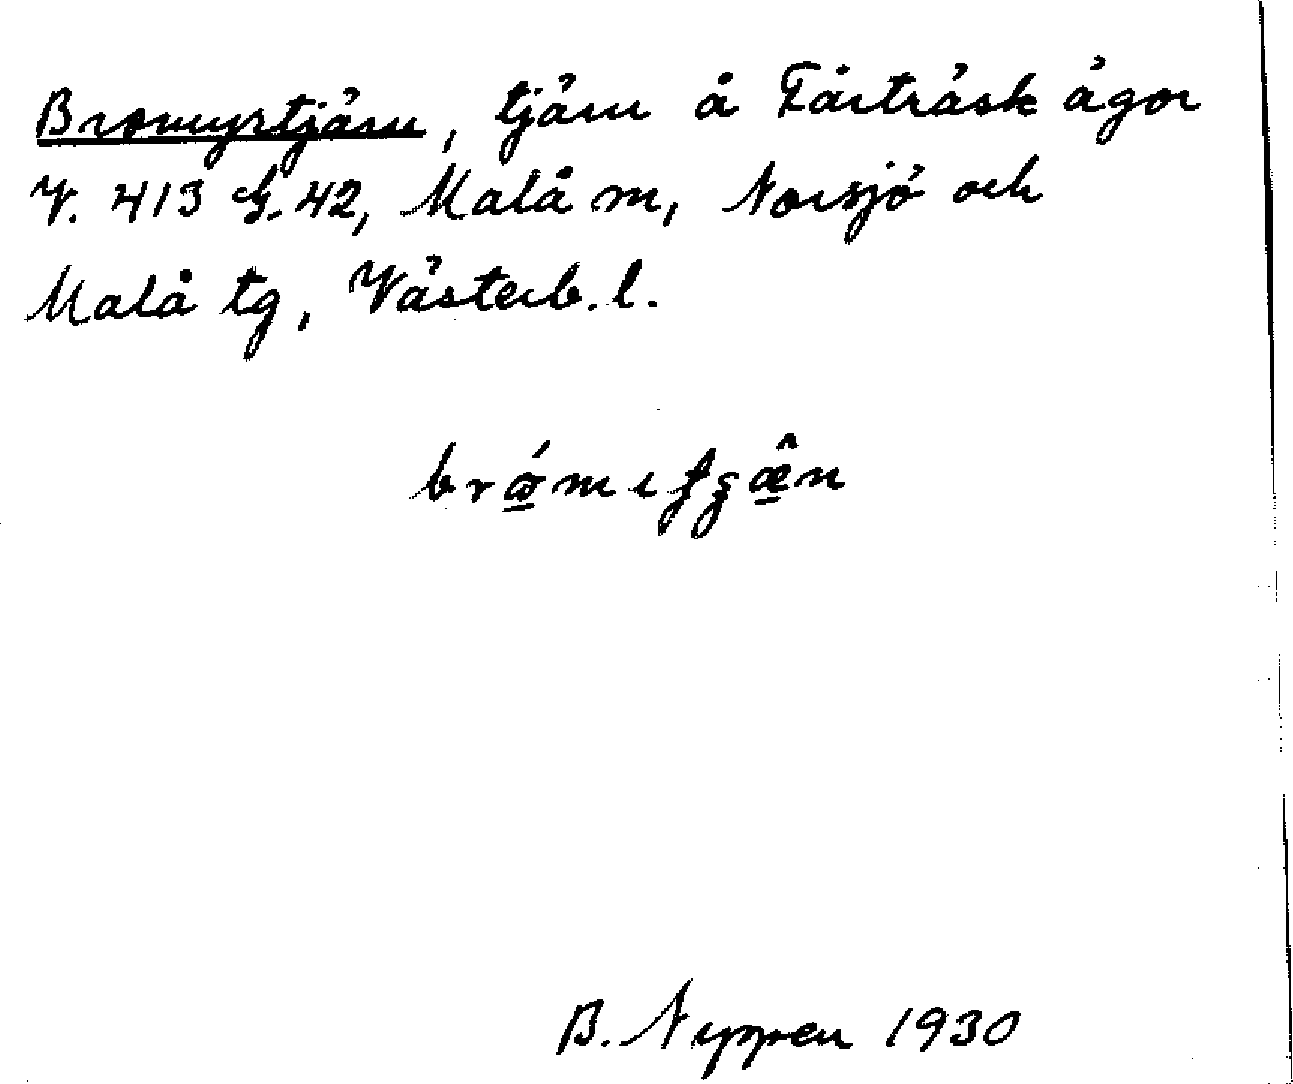 Bromyrtjärn, tjärn å Fårträsk ägor
V. 413 G. 42, Malå sn, Norsjö och
Malå tg, Västerb. l.
B. Nyppen 1930